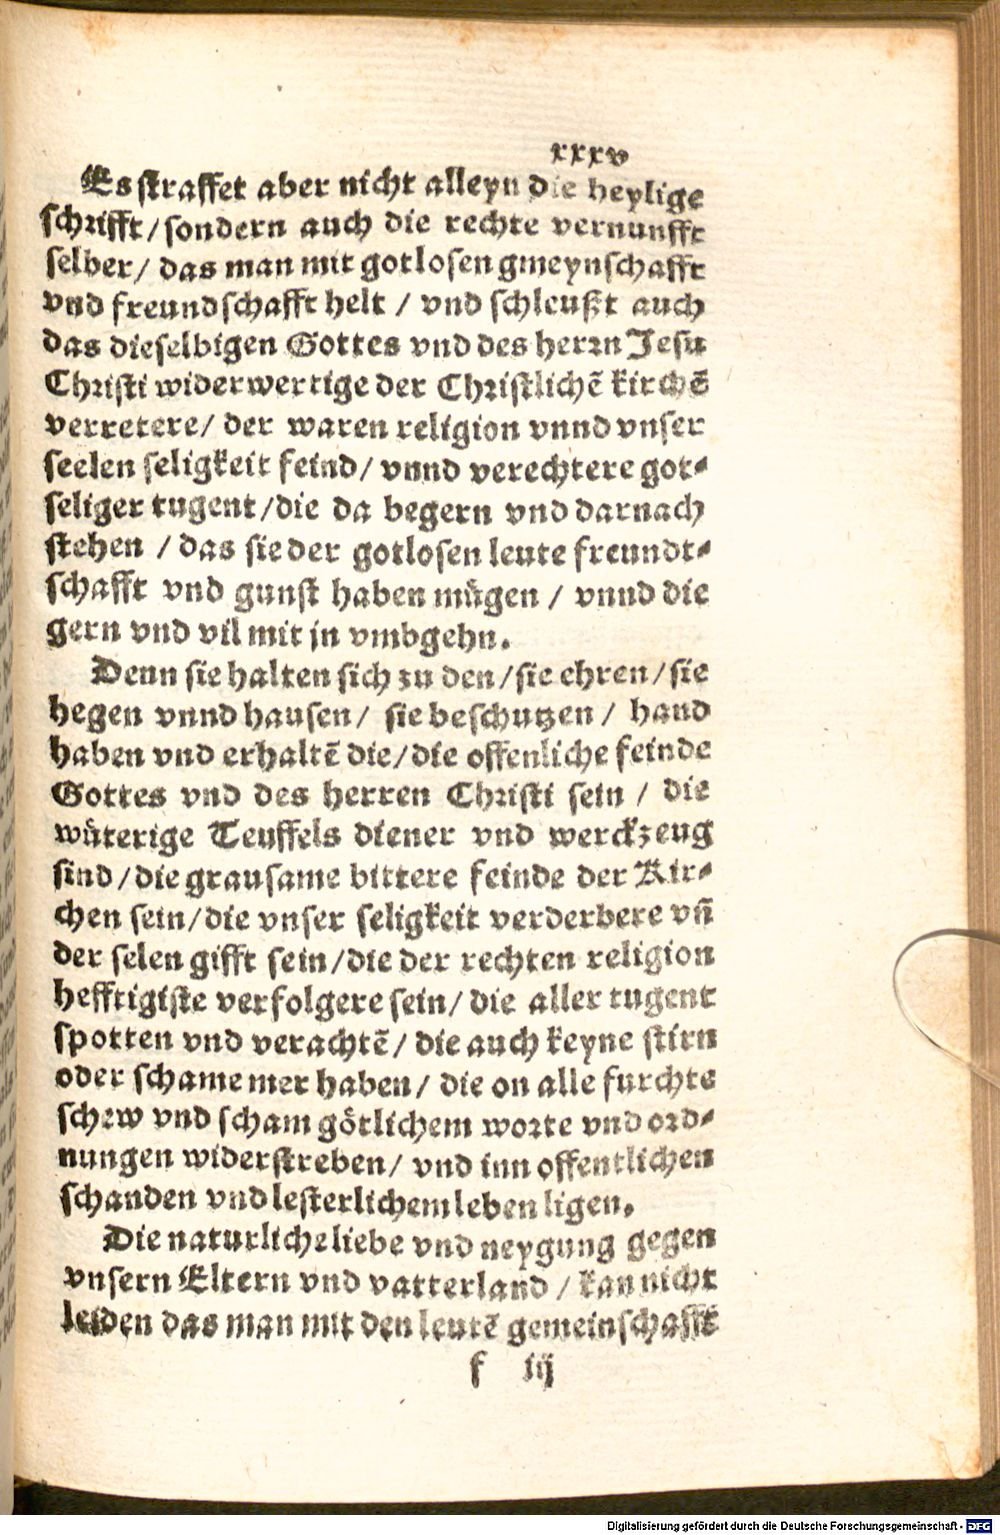 xxxv
Es straffet aber nicht alleyn die heylige
schrifft/sondern auch die rechte vernunfft
selber/ das man mit gotlosen gmeynschafft
vnd freundschafft helt / vnd schleußt auch
das dieselbigen Gottes vnd des herrn Jesu
Christi widerwertige der Christlichē kirchē
verretere/ der waren religion vnnd vnser
seelen seligkeit feind/ vnnd verechtere got-
seliger tugent/die da begern vnd darnach
stehen / das sie der gotlosen leute freundt-
schafft vnd gunst haben mügen / vnnd die
gern vnd vil mit jn vmbgehn.
Denn sie halten sich zu den/sie ehren/sie
hegen vnnd hausen/ sie beschutzen / hand
haben vnd erhaltē die/die offenliche feinde
Gottes vnd des herren Christi sein / die
wüterige Teuffels diener vnd werckzeug
sind/die grausame bittere feinde der Kir-
chen sein/die vnser seligkeit verderbere vñ
der selen gifft sein/die der rechten religion
hefftigiste verfolgere sein/ die aller tugent
spotten vnd verachtē/ die auch keyne stirn
oder schame mer haben/ die on alle furchte
schew vnd scham götlichem worte vnd ord-
nungen widerstreben/ vnd inn offentlichen
schanden vnd lesterlichem leben ligen.
Die naturliche liebe vnd neygung gegen
vnsern Eltern vnd vatterland / kan nicht
leiden das man mit den leutē gemeinschafft
f iij
Digitalisierung gefördert durch die Deutsche Forschungsgemeinschaft - DFG